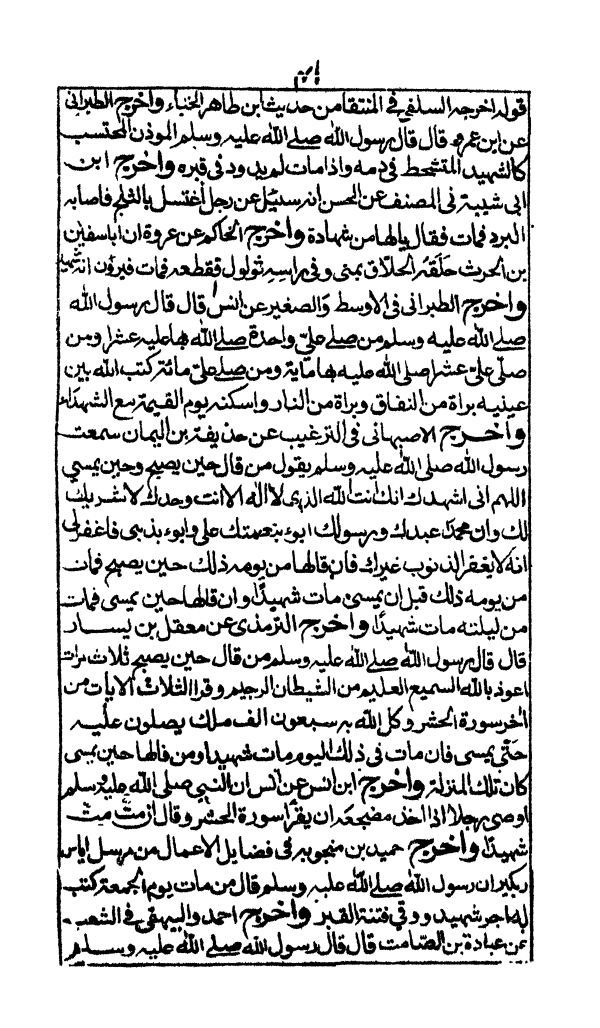 قوله اخرجه السلفي في المنتقا من حديث ابن طاهر الحناء واخرج الطبراني
عن ابن عمره قال قال رسول الله صلى الله عليه وسلم الموذن المحتسب
كالشهيد المتشحط في دمه واذا مات لم يدود في قبره واخرج ابن
ابي شيبة في المصنف عن الحسن انه سئيل عن رجل اغتسل بالثلج فاصابه
البرد فمات فقال يالها من شهادة واخرج الحاكم عن عروة ان اباسفين
بن الحرث حلقه الحلاق بمنى وفي راسه ثولول فقطعه فمات فيرون انه شهيد
واخرج الطبراني في الاوسط والصغير عن انس قال قال رسول الله
صلى الله عليه وسلم من صلى علي واحدة صلى الله بها عليه عشرا ومن
صلى علي عشرا صلى الله عليه بها مأية ومن صلى علي مائة كتب الله بين
عينيه براة من النفاق وبراة من النار واسكنه يوم القيمة مع الشهداء
واخرج الاصبهاني في الترغيب عن حذيفة بن اليمان سمعت
رسول الله صلى الله عليه وسلم يقول من قال حين يصبح وحين يمسي
اللهم اني اشهدك انك انت الله الذي لا اله الا انت وحدك لا شريك
لك وان محمدا عبدك ورسولك ابوء بنعمتك علي وابوء بذنبي فاغفر لي
انه لا يغفر الذنوب غيرك فان قالها من يومه ذلك حين يصبح فمات
من يومه ذلك قبل ان يمسي مات شهيدا وان قالها حين يمسي فمات
من ليلته مات شهيدا واخرج الترمذي عن معقل بن يسار
قال قال رسول الله صلى الله عليه وسلم من قال حين يصبح ثلاث مرات
اعوذ بالله السميع العليم من الشيطان الرجيم وقرا الثلاث الايات من
اخر سورة الحشر وكل الله به سبعون الف ملك يصلون عليه
حتى يمسي فان مات في ذلك اليوم مات شهيدا ومن قالها حين يمسي
كان تلك المنزلة واخرج ابن انس عن انس ان النبي صلى الله عليه وسلم
اوصى رجلا اذا اخذ مضجعه ان يقرأ سورة الحشر وقال ان مت مت
شهيدا واخرج حميد بن منجويه في فضايل الاعمال من مرسل اياس
بكير ان رسول الله صلى الله عليه وسلم قال من مات يوم الجمعة كتب
له اجر شهيد ووقي فتنة القبر واخرج احمد والبيهقي في الشعب
عن عبادة بن الصامت قال قال رسول الله صلى الله عليه وسلم